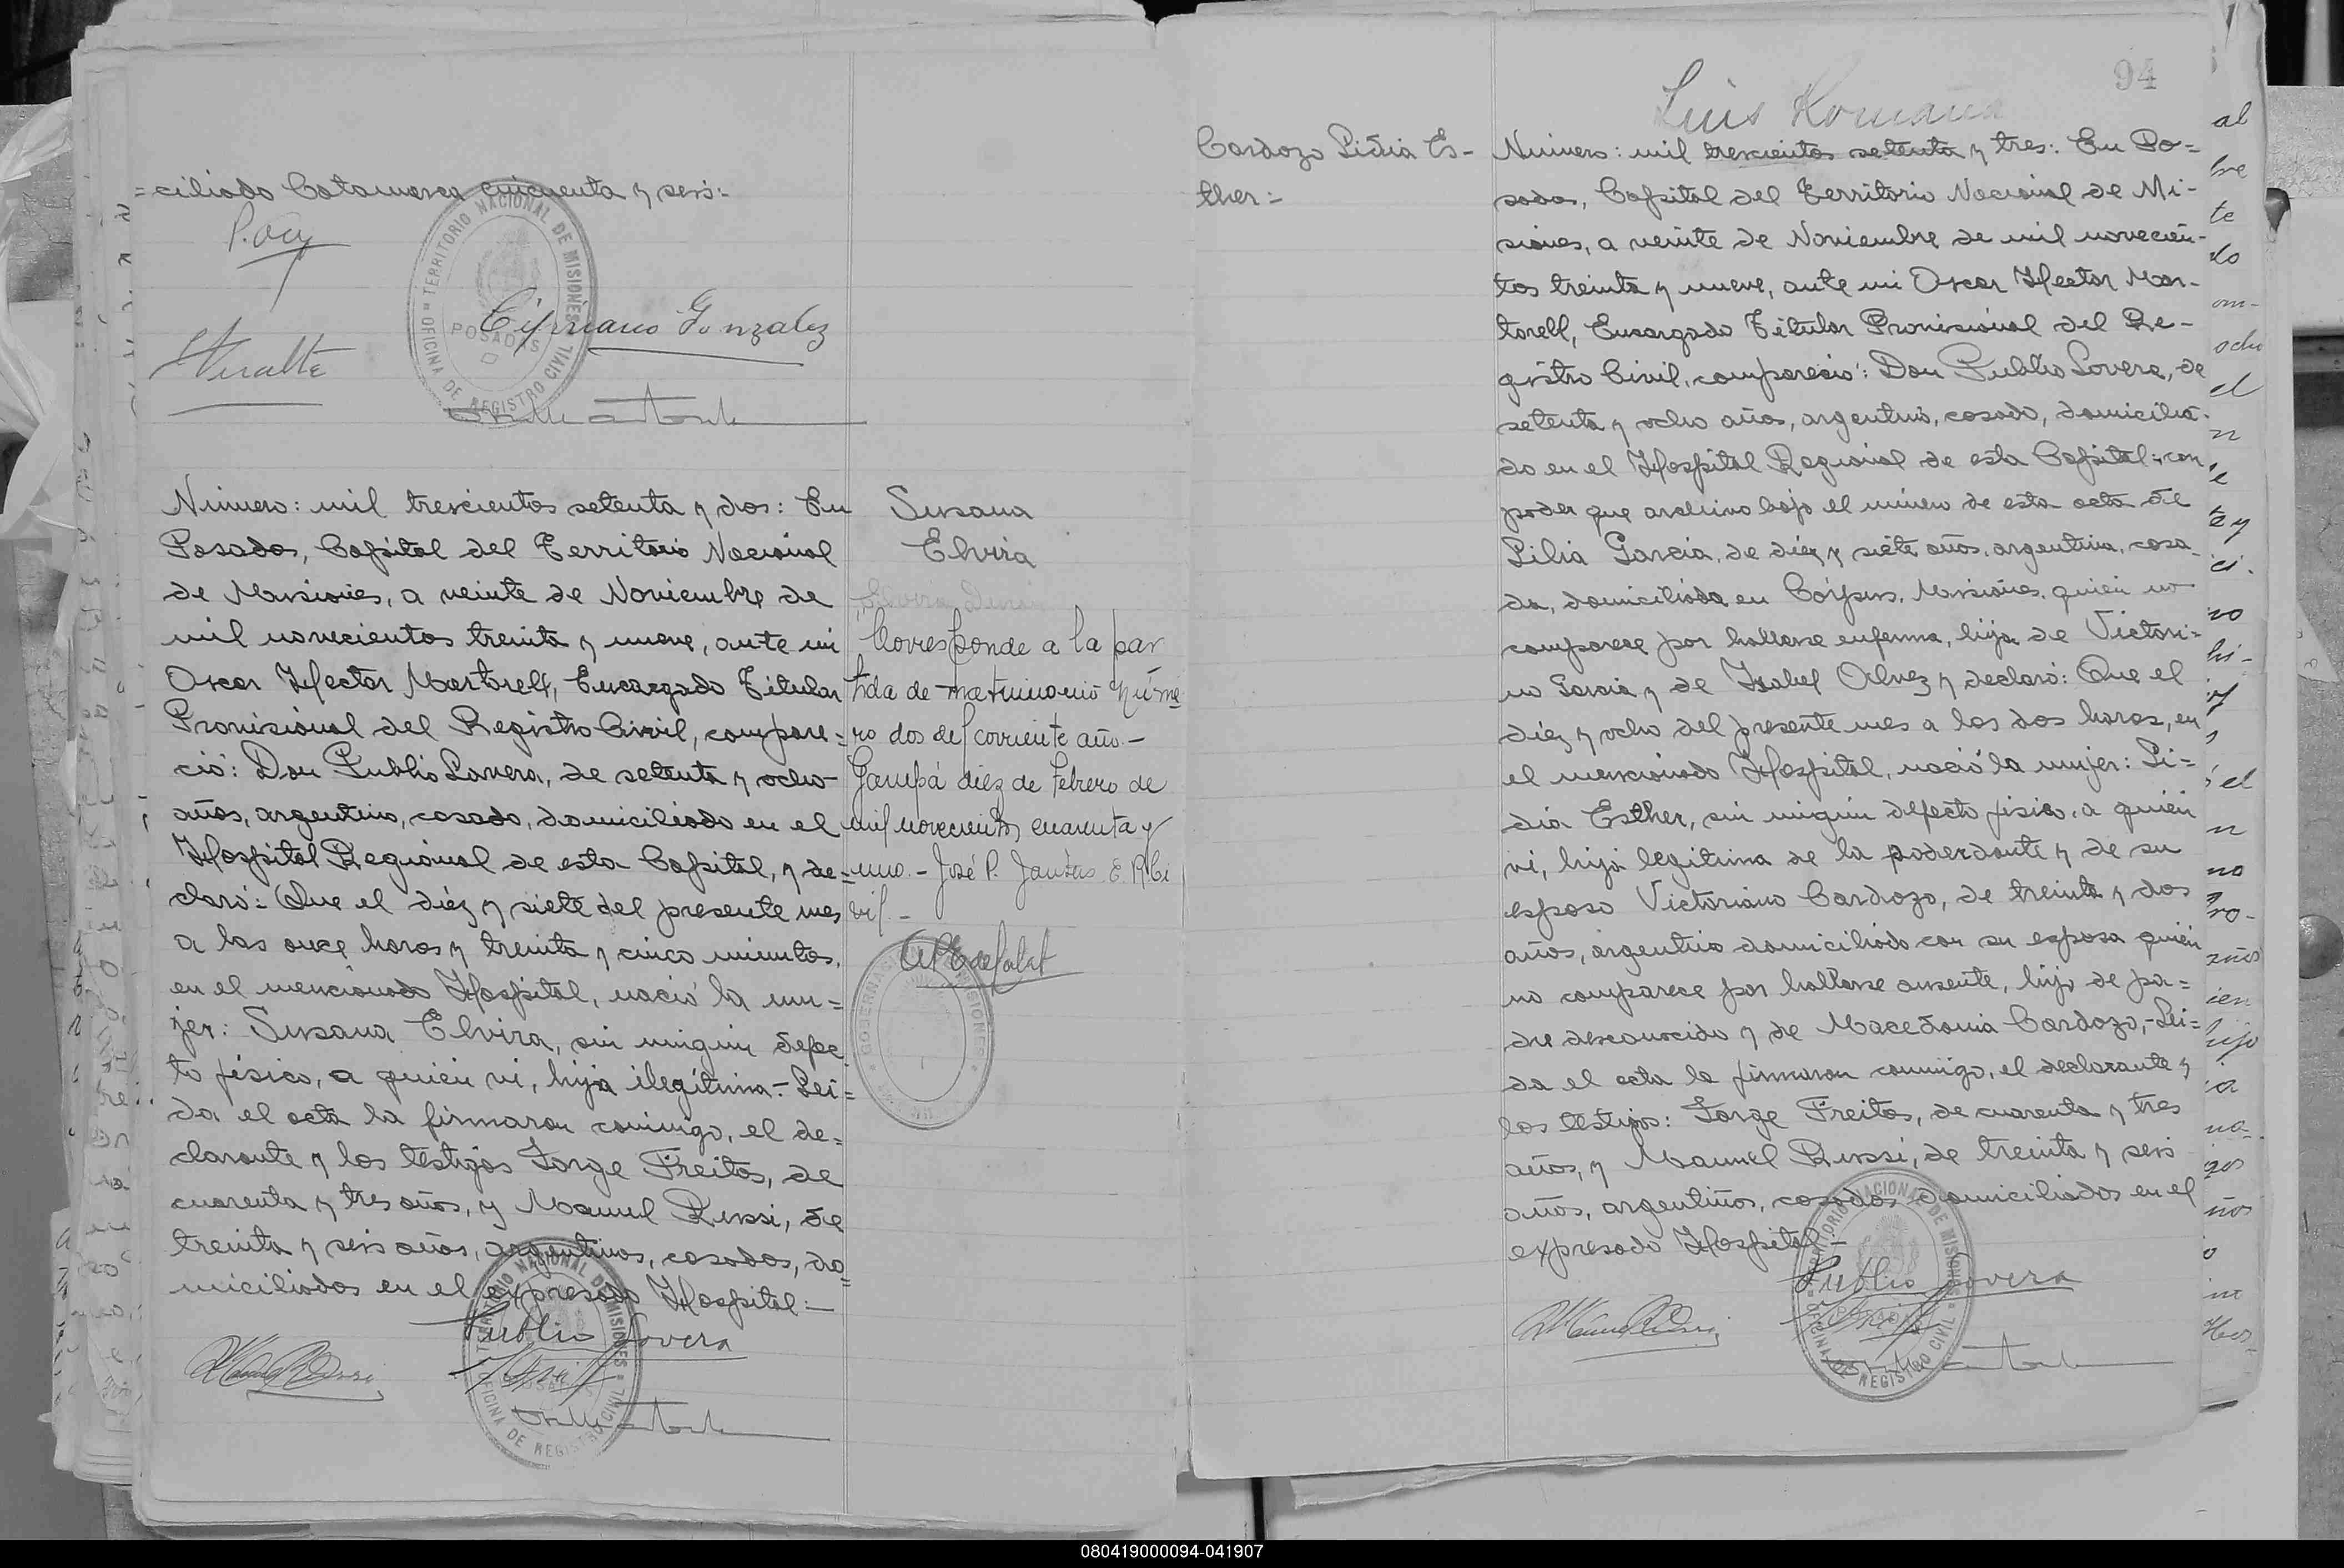 =ciliado Catamarca cincuenta y seis:-
TERRITORIO NACIONAL DE MISIONES
POSADAS
OFICINA DE REGISTRO CIVIL
Cipriano Gonzalez
Número: mil trescientos setenta y dos: En
Posadas, Capital del Territorio Nacional
de Misiones, a veinte de Noviembre de
mil novecientos treinta y nueve, ante mi
Oscar Hector Martorell, Encargado Titular
Provisional del Registro Civil, compare=
ció: Don Publio Lovera, de setenta y ocho
años, argentino, casado, domiciliado en el
Hospital Regional de esta Capital, y de=
claró: Que el diez y siete del presente mes
a las once horas y treinta y cinco minutos,
en el mencionado Hospital, nació la mu=
jer: Susana Elvira, sin ningun defec
to físico, a quién vi, hija ilegítima.- Lei=
da el acta la firmaron conmigo, el de=
clarante y los testigos Jorge Freitas, de
cuarenta y tres años, y Manuel Russi, de
treinta y seis años, argentinos, casados, do=
miciliados en el expresado Hospital:-
Publio Lovera
TERRITORIO NACIONAL DE MISIONES
OFICINA DE REGISTRO CIVIL
Susana
Elvira
Corresponde a la par
tida de matrimonio núme
ro dos del corriente año.-
Garupá diez de Febrero de
mil novecientos cuarenta y
uno.- José P. E. R. Ci
vil.-
94
Luis Romaña
Cardozo Lidia Es-
ther:-
Número: mil trescientos setenta y tres: En Po=
sadas, Capital del Territorio Nacional de Mi-
siones, a veinte de Noviembre de mil novecien-
tos treinta y nueve, ante mi Oscar Hector Mar-
torell, Encargado Titular Provisional del Re-
gistro Civil, compareció: Don Publio Lovera, de
setenta y ocho años, argentino, casado, domicilia-
do en el Hospital Regional de esta Capital; con
poder que archivo bajo el número de esta acta de
Lilia Garcia, de diez y siete años, argentina, casa-
da, domiciliada en Corpus, Misiones, quien no
comparece por hallarse enferma, hija de Victori=
no Garcia y de Isabel y declaró: Que el
diez y ocho del presente mes a las dos horas, en
el mencionado Hospital, nació la mujer: Li=
dia Esther, sin ningún defecto físico, a quién
vi, hija legítima de la poderdante y de su
esposo Victoriano Cardozo, de treinta y dos
años, argentino domiciliado con su esposa quién
no comparece por hallarse ausente, hijo de pa=
dre desconocido y de Macedonia Cardozo,-Lei=
da el acta la firmaron conmigo, el declarante y
los testigos: Jorge Freitas, de cuarenta y tres
años, y Manuel Russi, de treinta y seis
años, argentinos, casados domiciliados en el
expresado Hospital.-
Publio Lovera
TERRITORIO NACIONAL DE MISIONES
OFICINA DE REGISTRO CIVIL
080419000094-041907